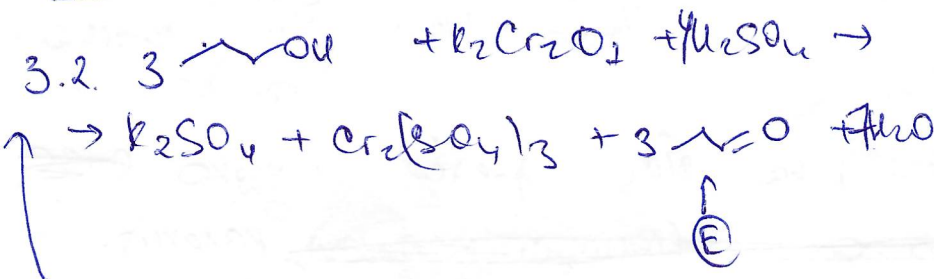 3.2. 3 OH + K₂Cr₂O₇ + 4H₂SO₄ →
→ K₂SO₄ + Cr₂(SO₄)₃ + 3 O + 7H₂O
E